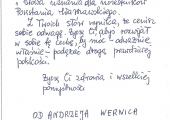 i słowa uznania dla mieszkańców
Powstania Warszawskiego.
Z Twoich słów wynika, że cenisz
sobie odwagę. Życzę Ci, abyś rozwijał
w sobie tę cechę, by móc odważnie,
właśnie - podążać drogą prawdziwej
polskości.
Życzę Ci zdrowia i wszelkiej
pomyślności
OD ANDRZEJA WERNICA